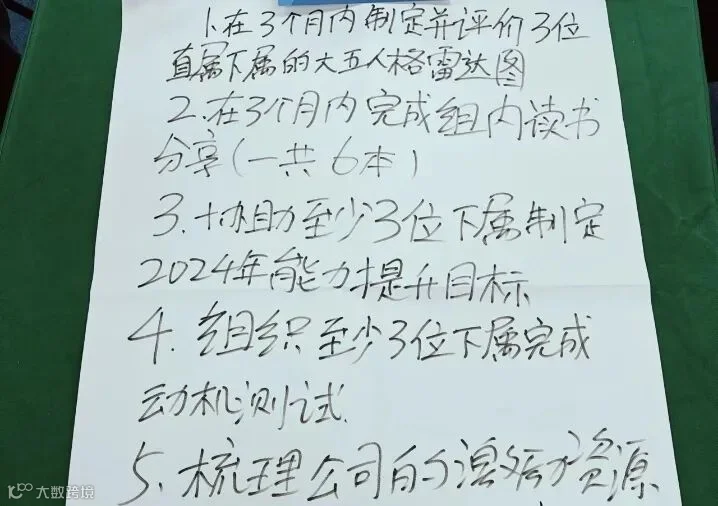 1.在3个月内制定并评价3位
直属下属的大五人格雷达图
2.在3个月内完成组内读书
分享(一共6本)
3.协助至少3位下属制定
2024年能力提升目标
4.组织至少3位下属完成
动机测试.
5.梳理公司的激励资源
大数跨境